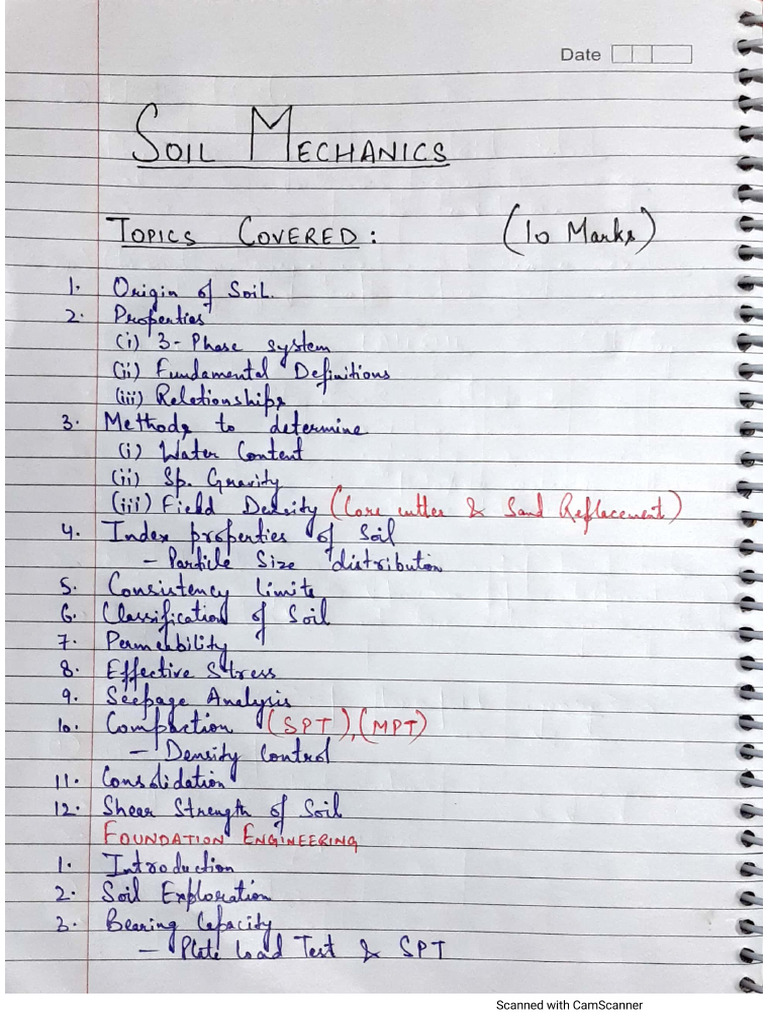 Date
SOIL MECHANICS
TOPICS COVERED : (10 Marks)
1. Origin of Soil.
2. Properties
(i) 3-Phase system
(ii) Fundamental Definitions
(iii) Relationships
3. Methods to determine
(i) Water Content
(ii) Sp. Gravity
(iii) Field Density (Core cutter & Sand Replacement)
4. Index properties of Soil
- Particle Size distribution
5. Consistency limits
6. Classification of Soil
7. Permeability
8. Effective Stress
9. Seepage Analysis
10. Compaction (SPT), (MPT)
- Density Control
11. Consolidation
12. Shear Strength of Soil
FOUNDATION ENGINEERING
1. Introduction
2. Soil Exploration
3. Bearing Capacity
- Plate Load Test & SPT
Scanned with CamScanner